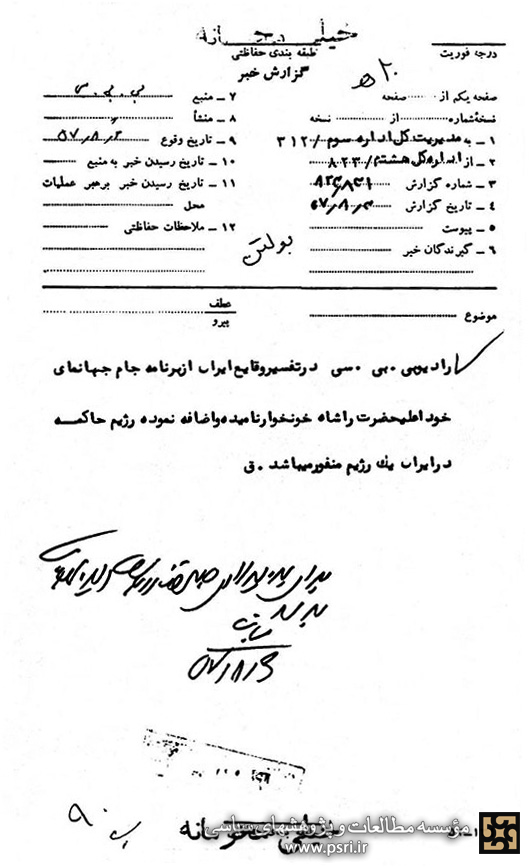 خیلی محرمانه
طبقه بندی حفاظتی
درجه فوریت
گزارش خبر
۲۰ ه
صفحه یکم از ........ صفحه
نسخه‌شماره ........ از ........ نسخه
۱ - به مدیریت کل اداره سوم / ۳۱۲
۲ - از اداره کل هشتم / ۸۲۳
۳ - شماره گزارش
۴ - تاریخ گزارش
۵ - پیوست
۶ - گیرندگان خبر
۷ - منبع بی. بی. سی
۸ - منشأ
۹ - تاریخ وقوع
۱۰ - تاریخ رسیدن خبر به منبع
۱۱ - تاریخ رسیدن خبر برهبر عملیات
محل
۱۲ - ملاحظات حفاظتی
بولتن
موضوع
عطف
پیرو
رادیو بی . بی . سی در تفسیر وقایع ایران از برنامه جام جهان‌نمای
خود اعلیحضرت را شاه خونخوار نامیده و اضافه نموده رژیم حاکمه
در ایران یك رژیم منفور میباشد . ق
۹۰
خیلی محرمانه
مؤسسه مطالعات و پژوهشهای سیاسی
www.psri.ir